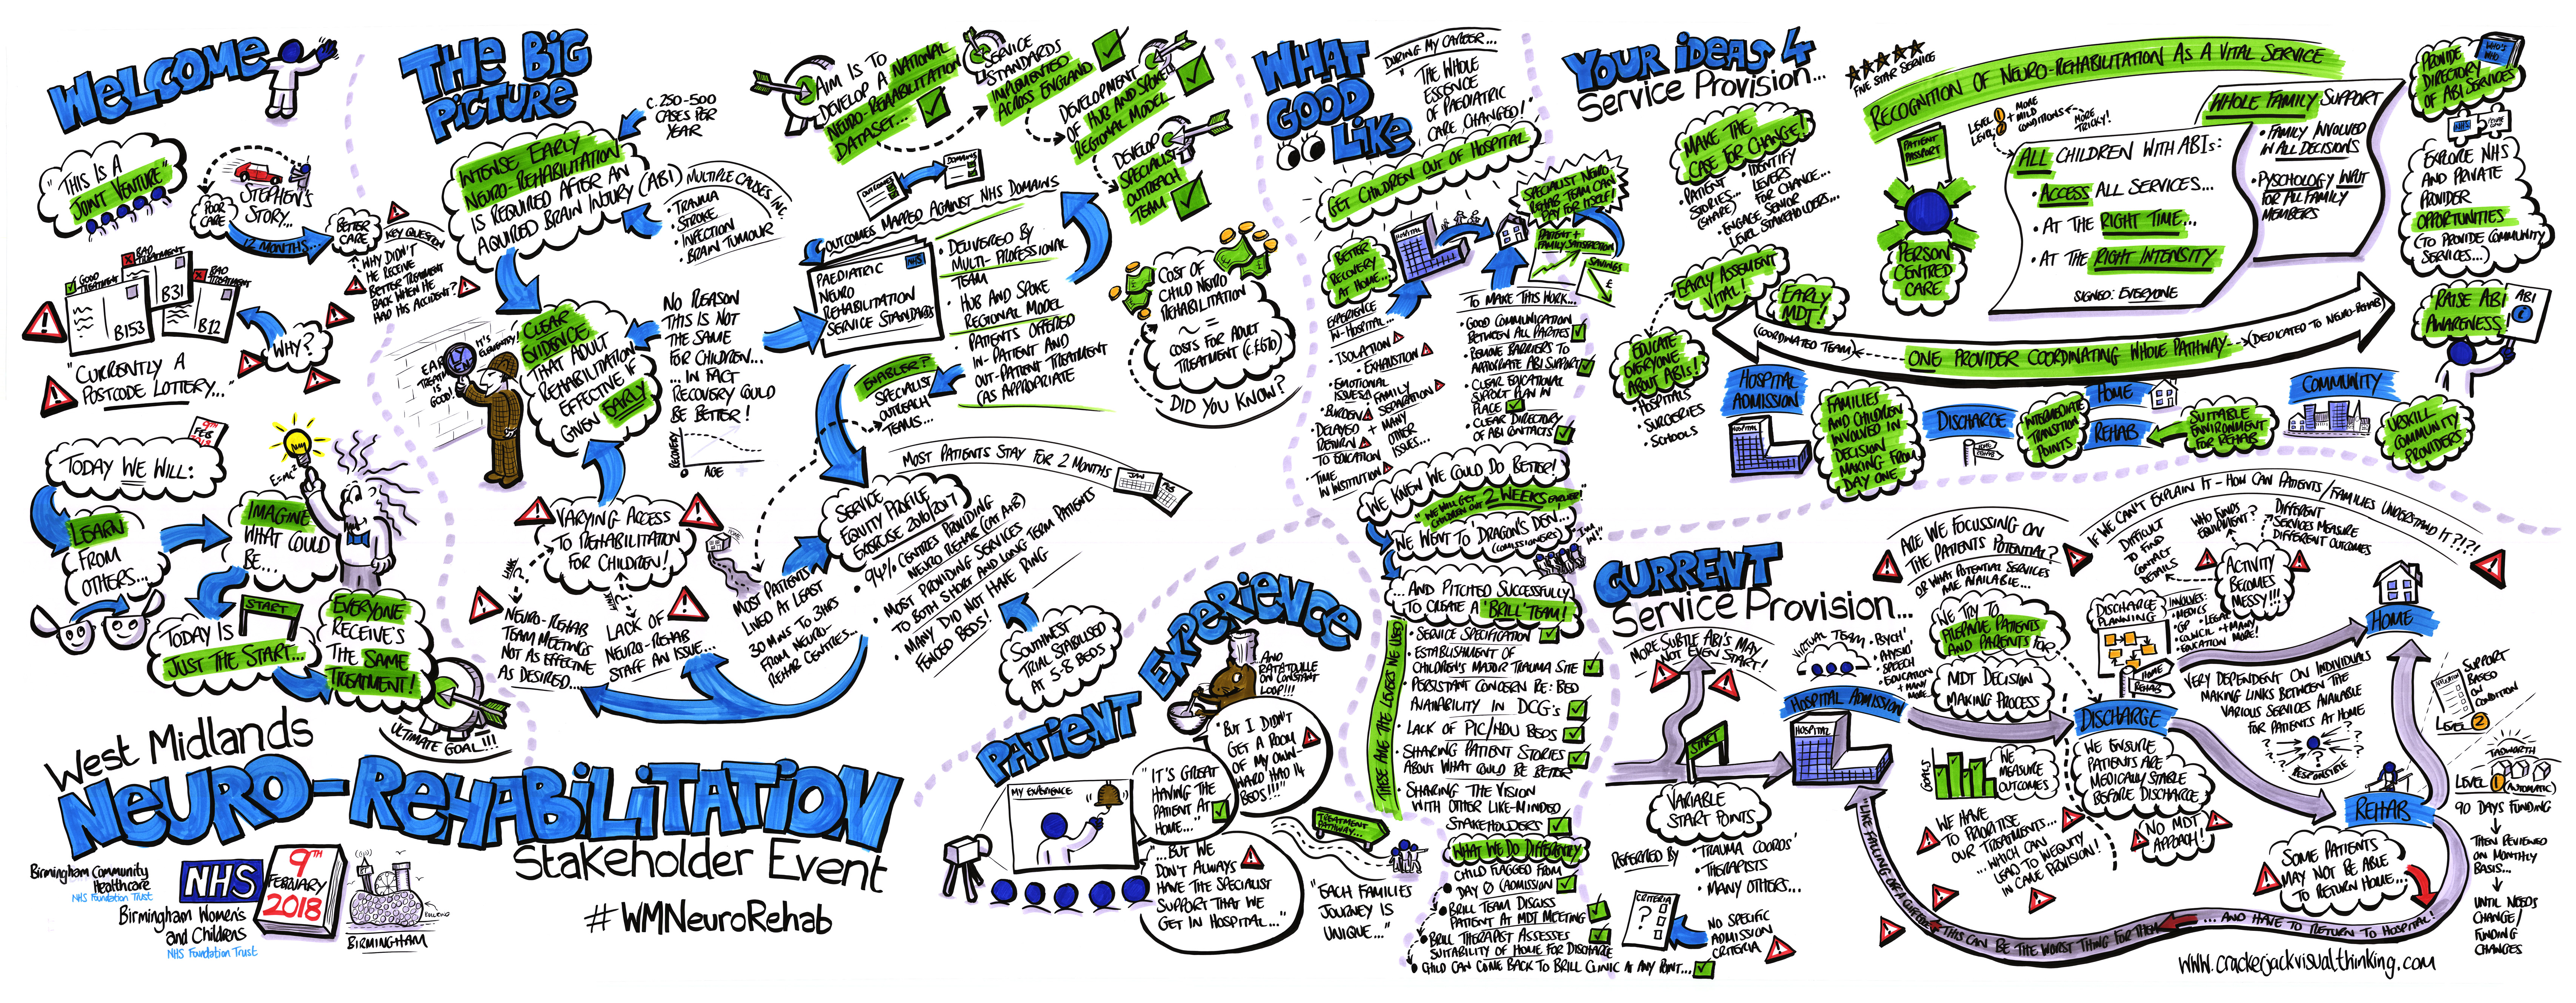 WELCOME
"THIS IS A
JOINT VENTURE"
STEPHEN'S
STORY...
POOR
CARE
12 MONTHS...
BETTER
CARE
KEY QUESTION
WHY DIDN'T
HE RECEIVE
BETTER TREATMENT
BACK WHEN HE
HAD HIS ACCIDENT?
GOOD
TREATMENT
BAD
TREATMENT
BAD
TREATMENT
B153
B31
B12
WHY?
"CURRENTLY A
POSTCODE LOTTERY..."
9TH
FEB
2018
TODAY WE WILL:
LEARN
FROM
OTHERS...
E=MC²
IMAGINE
WHAT COULD
BE...
START
TODAY IS
JUST THE START...
EVERYONE
RECEIVE'S
THE SAME
TREATMENT!
ULTIMATE GOAL!!!
West Midlands
NEURO-REHABILITATION
Stakeholder Event
#WMNeuroRehab
Birmingham Community
Healthcare
NHS Foundation Trust
Birmingham Women's
and Childrens
NHS Foundation Trust
NHS
9TH
FEBRUARY
2018
BULLRING
BIRMINGHAM
THE BIG
PICTURE
C. 250-500
CASES PER
YEAR
INTENSE EARLY
NEURO-REHABILITATION
IS REQUIRED AFTER AN
AQUIRED BRAIN INJURY (ABI)
MULTIPLE CAUSES INC.
• TRAUMA
• STROKE
• INFECTION
• BRAIN TUMOUR
IT'S ELEMENTARY!
CLEAR
EVIDENCE
THAT ADULT
REHABILITATION
EFFECTIVE IF
GIVEN EARLY
NO REASON
THIS IS NOT
THE SAME
FOR CHILDREN...
... IN FACT
RECOVERY COULD
BE BETTER!
RECOVERY
AGE
VARYING ACCESS
TO REHABILITATION
FOR CHILDREN!
LINK?
NEURO-REHAB
TEAM MEETINGS
NOT AS EFFECTIVE
AS DESIRED...
LACK OF
NEURO-REHAB
STAFF AN ISSUE...
AIM IS TO
DEVELOP A NATIONAL
NEURO-REHABILITATION
DATASET...
SERVICE
STANDARDS
IMPLEMENTED
ACROSS ENGLAND
DEVELOPMENT
OF HUB AND SPOKE
REGIONAL MODEL
DEVELOP
SPECIALIST
OUTREACH
TEAM
OUTCOMES
DOMAINS
OUTCOMES MAPPED AGAINST NHS DOMAINS
PAEDIATRIC
NEURO
REHABILITATION
SERVICE STANDARDS
NHS
• DELIVERED BY
MULTI-PROFESSIONAL
TEAM
• HUB AND SPOKE
REGIONAL MODEL
• PATIENTS OFFERED
IN-PATIENT AND
OUT-PATIENT TREATMENT
(AS APPROPRIATE
ENABLER?
SPECIALIST
OUTREACH
TEAMS...
COST OF
CHILD NEURO
REHABILITATION
~ =
COSTS FOR ADULT
TREATMENT
DID YOU KNOW?
MOST PATIENTS STAY FOR 2 MONTHS
JAN
FEB
SERVICE
EQUITY PROFILE
EXERCISE 2016/2017
• 94% CENTRES PROVIDING
NEURO REHAB (CAT A+B)
• MOST PROVIDING SERVICES
TO BOTH SHORT AND LONG TERM PATIENTS
• MANY DID NOT HAVE RING
FENCED BEDS!
MOST PATIENTS
LIVED AT LEAST
30 MINS TO 3HRS
FROM NEURO-
REHAB CENTRES...
SOUTHWEST
TRIAL STABILISED
AT 5-8 BEDS
PATIENT EXPERIENCE
...AND
RATATOUILLE
ON CONSTANT
LOOP!!!
"BUT I DIDN'T
GET A ROOM
OF MY OWN-
WARD HAD 14
BEDS!!!"
MY EXPERIENCE
"IT'S GREAT
HAVING THE
PATIENT AT
HOME..."
"...BUT WE
DON'T ALWAYS
HAVE THE SPECIALIST
SUPPORT THAT WE
GET IN HOSPITAL..."
TREATMENT
PATHWAY...
"EACH FAMILIES
JOURNEY IS
UNIQUE..."
WHAT
GOOD
LOOKS
LIKE
DURING MY CAREER...
"THE WHOLE
ESSENCE
OF PAEDIATRIC
CARE CHANGED!"
GET CHILDREN OUT OF HOSPITAL
BETTER
RECOVERY
AT HOME...
HOSPITAL
SPECIALIST NEURO
REHAB TEAM CAN
PAY FOR ITSELF!
PATIENT +
FAMILY SATISFACTION
SAVINGS
£
EXPERIENCE
IN-HOSPITAL...
• ISOLATION
• EXHAUSTION
• EMOTIONAL
ISSUES
• FAMILY
SEPARATION
• BURDEN
• DELAYED
RETURN
TO EDUCATION
+ MANY
OTHER
ISSUES...
• TIME
IN INSTITUTION
TO MAKE THIS WORK...
• GOOD COMMUNICATION
BETWEEN ALL PARTIES
• REMOVE BARRIERS TO
APPROPRIATE ABI SUPPORT
• CLEAR EDUCATIONAL
SUPPORT PLAN IN
PLACE
• CLEAR DIRECTORY
OF ABI CONTACTS
WE KNEW WE COULD DO BETTER!
"WE WILL GET
CHILDREN OUT 2 WEEKS EARLIER!"
WE WENT TO 'DRAGON'S DEN'...
(COMMISSIONERS)
I'M
IN!
...AND PITCHED SUCCESSFULLY
TO CREATE A 'BRILL' TEAM!
THESE ARE THE LEVERS WE USED
• SERVICE SPECIFICATION
• ESTABLISHMENT OF
CHILDREN'S MAJOR TRAUMA SITE
• PERSISTANT CONCERN RE: BED
AVAILABILITY IN DCG'S
• LACK OF PIC/HDU BEDS
• SHARING PATIENT STORIES
ABOUT WHAT COULD BE BETTER
• SHARING THE VISION
WITH OTHER LIKE-MINDED
STAKEHOLDERS
WHAT WE DO DIFFERENTLY
CHILD FLAGGED FROM
DAY 0 (ADMISSION
• BRILL TEAM DISCUSS
PATIENT AT MDT MEETING
• BRILL THERAPIST ASSESSES
SUITABILITY OF HOME FOR DISCHARGE
• CHILD CAN COME BACK TO BRILL CLINIC AT ANY POINT...
YOUR IDEAS 4
Service Provision...
MAKE THE
CASE FOR CHANGE!
• PATIENT
STORIES...
(SHARE)
• IDENTIFY
LEVERS
FOR CHANGE...
• ENGAGE SENIOR
LEVEL STAKEHOLDERS...
EARLY ASSESMENT
VITAL!
EARLY
MDT!
EDUCATE
EVERYONE
ABOUT ABIs!
• HOSPITALS
• SURGERIES
• SCHOOLS
FIVE STAR SERVICE
RECOGNITION OF NEURO-REHABILITATION AS A VITAL SERVICE
LEVEL 1
LEVEL 2
+ MORE
MILD
CONDITIONS
MORE
TRICKY!
PATIENT
PASSPORT
PERSON
CENTRED
CARE
ALL CHILDREN WITH ABIs:
• ACCESS ALL SERVICES...
• AT THE RIGHT TIME...
• AT THE RIGHT INTENSITY
SIGNED: EVERYONE
WHOLE FAMILY SUPPORT
• FAMILY INVOLVED
IN ALL DECISIONS
• PYSCHOLOGY INPUT
FOR ALL FAMILY
MEMBERS
PROVIDE
DIRECTORY
OF ABI SERVICES
WHO'S
WHO
NHS
EXPLORE NHS
AND PRIVATE
PROVIDER
OPPORTUNITIES
(TO PROVIDE COMMUNITY
SERVICES...)
RAISE ABI
AWARENESS!
ABI
(COORDINATED TEAM)
ONE PROVIDER COORDINATING WHOLE PATHWAY
(DEDICATED TO NEURO-REHAB)
HOSPITAL
ADMISSION
HOSPITAL
FAMILIES
AND CHILDREN
INVOLVED IN
DECISION
MAKING FROM
DAY ONE
DISCHARGE
HOME
REHAB
INTERMEDIATE
TRANSITION
POINTS
HOME
REHAB
SUITABLE
ENVIRONMENT
FOR REHAB
COMMUNITY
UPSKILL
COMMUNITY
PROVIDERS
CURRENT
Service Provision...
MORE SUBTLE ABI'S MAY
NOT EVEN START!
START
VARIABLE
START POINTS
REFERRED BY
• TRAUMA COORDS'
• THERAPISTS
• MANY OTHERS...
CRITERIA
?
NO SPECIFIC
ADMISSION
CRITERIA
VIRTUAL TEAM
• PSYCH'
• PHYSIO'
• SPEECH
• EDUCATION
+ MANY
MORE...
HOSPITAL ADMISSION
HOSPITAL
ARE WE FOCUSSING ON
THE PATIENTS POTENTIAL?
OR WHAT POTENTIAL SERVICES
ARE AVAILABLE...
WE TRY TO
PREPARE PATIENTS
AND PARENTS FOR
MDT DECISION
MAKING PROCESS
GOALS
WE
MEASURE
OUTCOMES
WE HAVE
TO PRIORITISE
OUR TREATMENTS...
...WHICH CAN
LEAD TO INEQUITY
IN CARE PROVISION!
IF WE CAN'T EXPLAIN IT - HOW CAN PATIENTS/FAMILIES UNDERSTAND IT?!?!
DIFFICULT
TO FIND
CONTACT
DETAILS
WHO FUNDS
EQUIPMENT?
DIFFERENT
SERVICES MEASURE
DIFFERENT OUTCOMES
ACTIVITY
BECOMES
MESSY!!!
DISCHARGE
PLANNING
INVOLVES:
• MEDICS
• GP
• LEGAL
• COUNCIL
• EDUCATION
+ MANY
MORE!
HOME
REHAB
DISCHARGE
WE ENSURE
PATIENTS ARE
MEDICALLY STABLE
BEFORE DISCHARGE
NO MDT
APPROACH!
HOME
VERY DEPENDENT ON INDIVIDUALS
MAKING LINKS BETWEEN THE
VARIOUS SERVICES AVAILABLE
FOR PATIENTS AT HOME
RESPONSIBLE
REHAB
SUPPORT
BASED
ON
CONDITION
LEVEL 2
TADWORTH
LEVEL 1 (AUTOMATIC)
90 DAYS FUNDING
THEN REVIEWED
ON MONTHLY
BASIS...
UNTIL NEEDS
CHANGE/
FUNDING
CHANGES
SOME PATIENTS
MAY NOT BE ABLE
TO RETURN HOME...
...AND HAVE TO RETURN TO HOSPITAL!
THIS CAN BE THE WORST THING FOR THEM
"LIKE FALLING OF A CLIFF
www.crackerjackvisualthinking.com